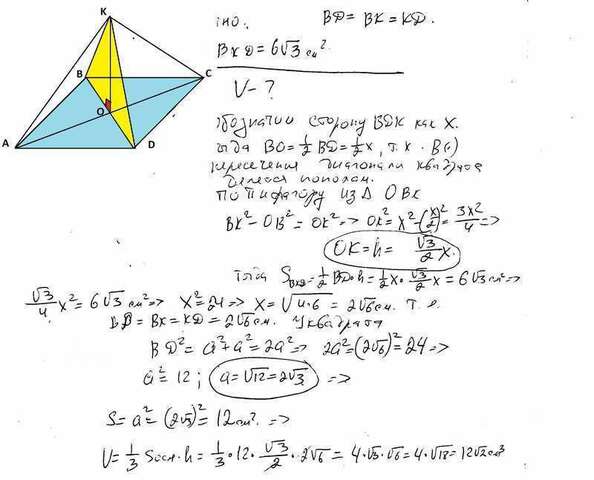 K
B
C
O
A
D
но. BD = BK = KD.
BKD = 6√3 см².
V - ?
обозначим сторону BDK как X.
гда BO = 1/2 BD = 1/2 x, т.к.
пересечения диагонали квадрата
делятся пополам.
По Пифагору из Δ OBK
BK² - OB² = OK² => OK² = x² - (x/2)² = 3x²/4 =>
OK = h = √3/2 x.
тогда S BKD = 1/2 BD·h = 1/2 x · √3/2 x = 6√3 см² =>
√3/4 x² = 6√3 см² => x² = 24 => x = √4·6 = 2√6 см. т.е.
BD = BK = KD = 2√6 см. У квадрата
BD² = a² + a² = 2a² => 2a² = (2√6)² = 24 =>
a² = 12; a = √12 = 2√3 =>
S = a² = (2√3)² = 12 см². =>
V = 1/3 Sосн·h = 1/3 · 12 · √3/2 · 2√6 = 4·√3·√6 = 4·√18 = 12√2 см³